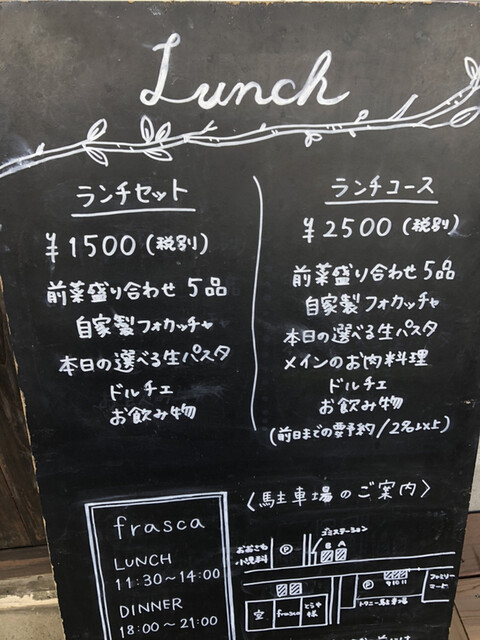 Lunch
ランチセット
¥1500(税別)
前菜盛り合わせ 5品
自家製フォカッチャ
本日の選べる生パスタ
ドルチェ
お飲み物
ランチコース
¥2500(税別)
前菜盛り合わせ 5品
自家製フォカッチャ
本日の選べる生パスタ
メインのお肉料理
ドルチェ
お飲み物
(前日までの要予約/2名以上)
frasca
LUNCH
11:30〜14:00
DINNER
18:00〜21:00
〈駐車場のご案内〉
ゴミステーション
小児科
P
B A
P
9 10 11
ファミリー
マート
空
frasca